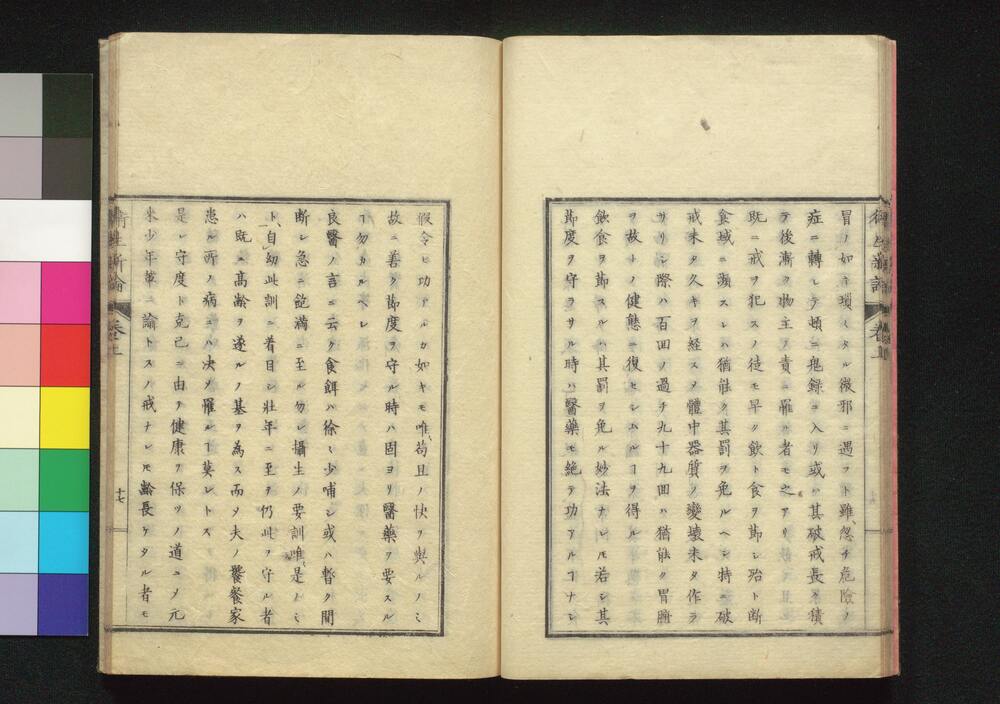 冒ノ如キ瑣々タル微邪ニ遇フト雖忽チ危險ノ
症ニ轉シテ頓ニ鬼錄ニ入リ或ハ其破戒長ク積
テ後漸ク物主ノ責ニ罹ル者モ之アリ
既ニ戒ヲ犯スノ徒モ早ク飲ト食ヲ節シ殆ト断
食域ニ瀕スレハ猶能ク其罰ヲ免ルヘシ特ニ破
戒未タ久キヲ経スメ體中器質ノ變壊未タ作ラ
サリシ際ハ百回ノ過チ九十九回ハ猶能ク胃腑
ヲ故トノ健態ニ復セシムルヿヲ得ル
飲食ヲ節スルハ其罰ヲ免ル妙法ナレトモ若シ其
節度ヲ守ラサル時ハ醫藥モ絶テ功アルヿナシ
衛生新論 卷上
假令ヒ功アルカ如キモ唯苟且ノ快ヲ與ルノミ
故ニ善ク節度ヲ守ル時ハ固ヨリ醫藥ヲ要スル
ヿ勿カルヘシ
良醫ノ言ニ云ク食餌ハ徐々少哺シ或ハ暫ク間
断シ急ニ飽満ニ至ル勿レ攝生ノ要訓唯是ノミ
ト自幼此訓ニ着目シ壮年ニ至テ仍此ヲ守ル者
ハ既ニ髙齢ヲ遂ルノ基ヲ為ス而メ夫ノ饕餮家
患ル所ノ病ニハ决メ罹ルヿ莫シトス
是レ守度ト克己ニ由テ健康ヲ保ツノ道ニメ元
来少年輩ニ諭トスノ戒ナレトモ齢長ケタル者モ
衛生新論 卷上
十七